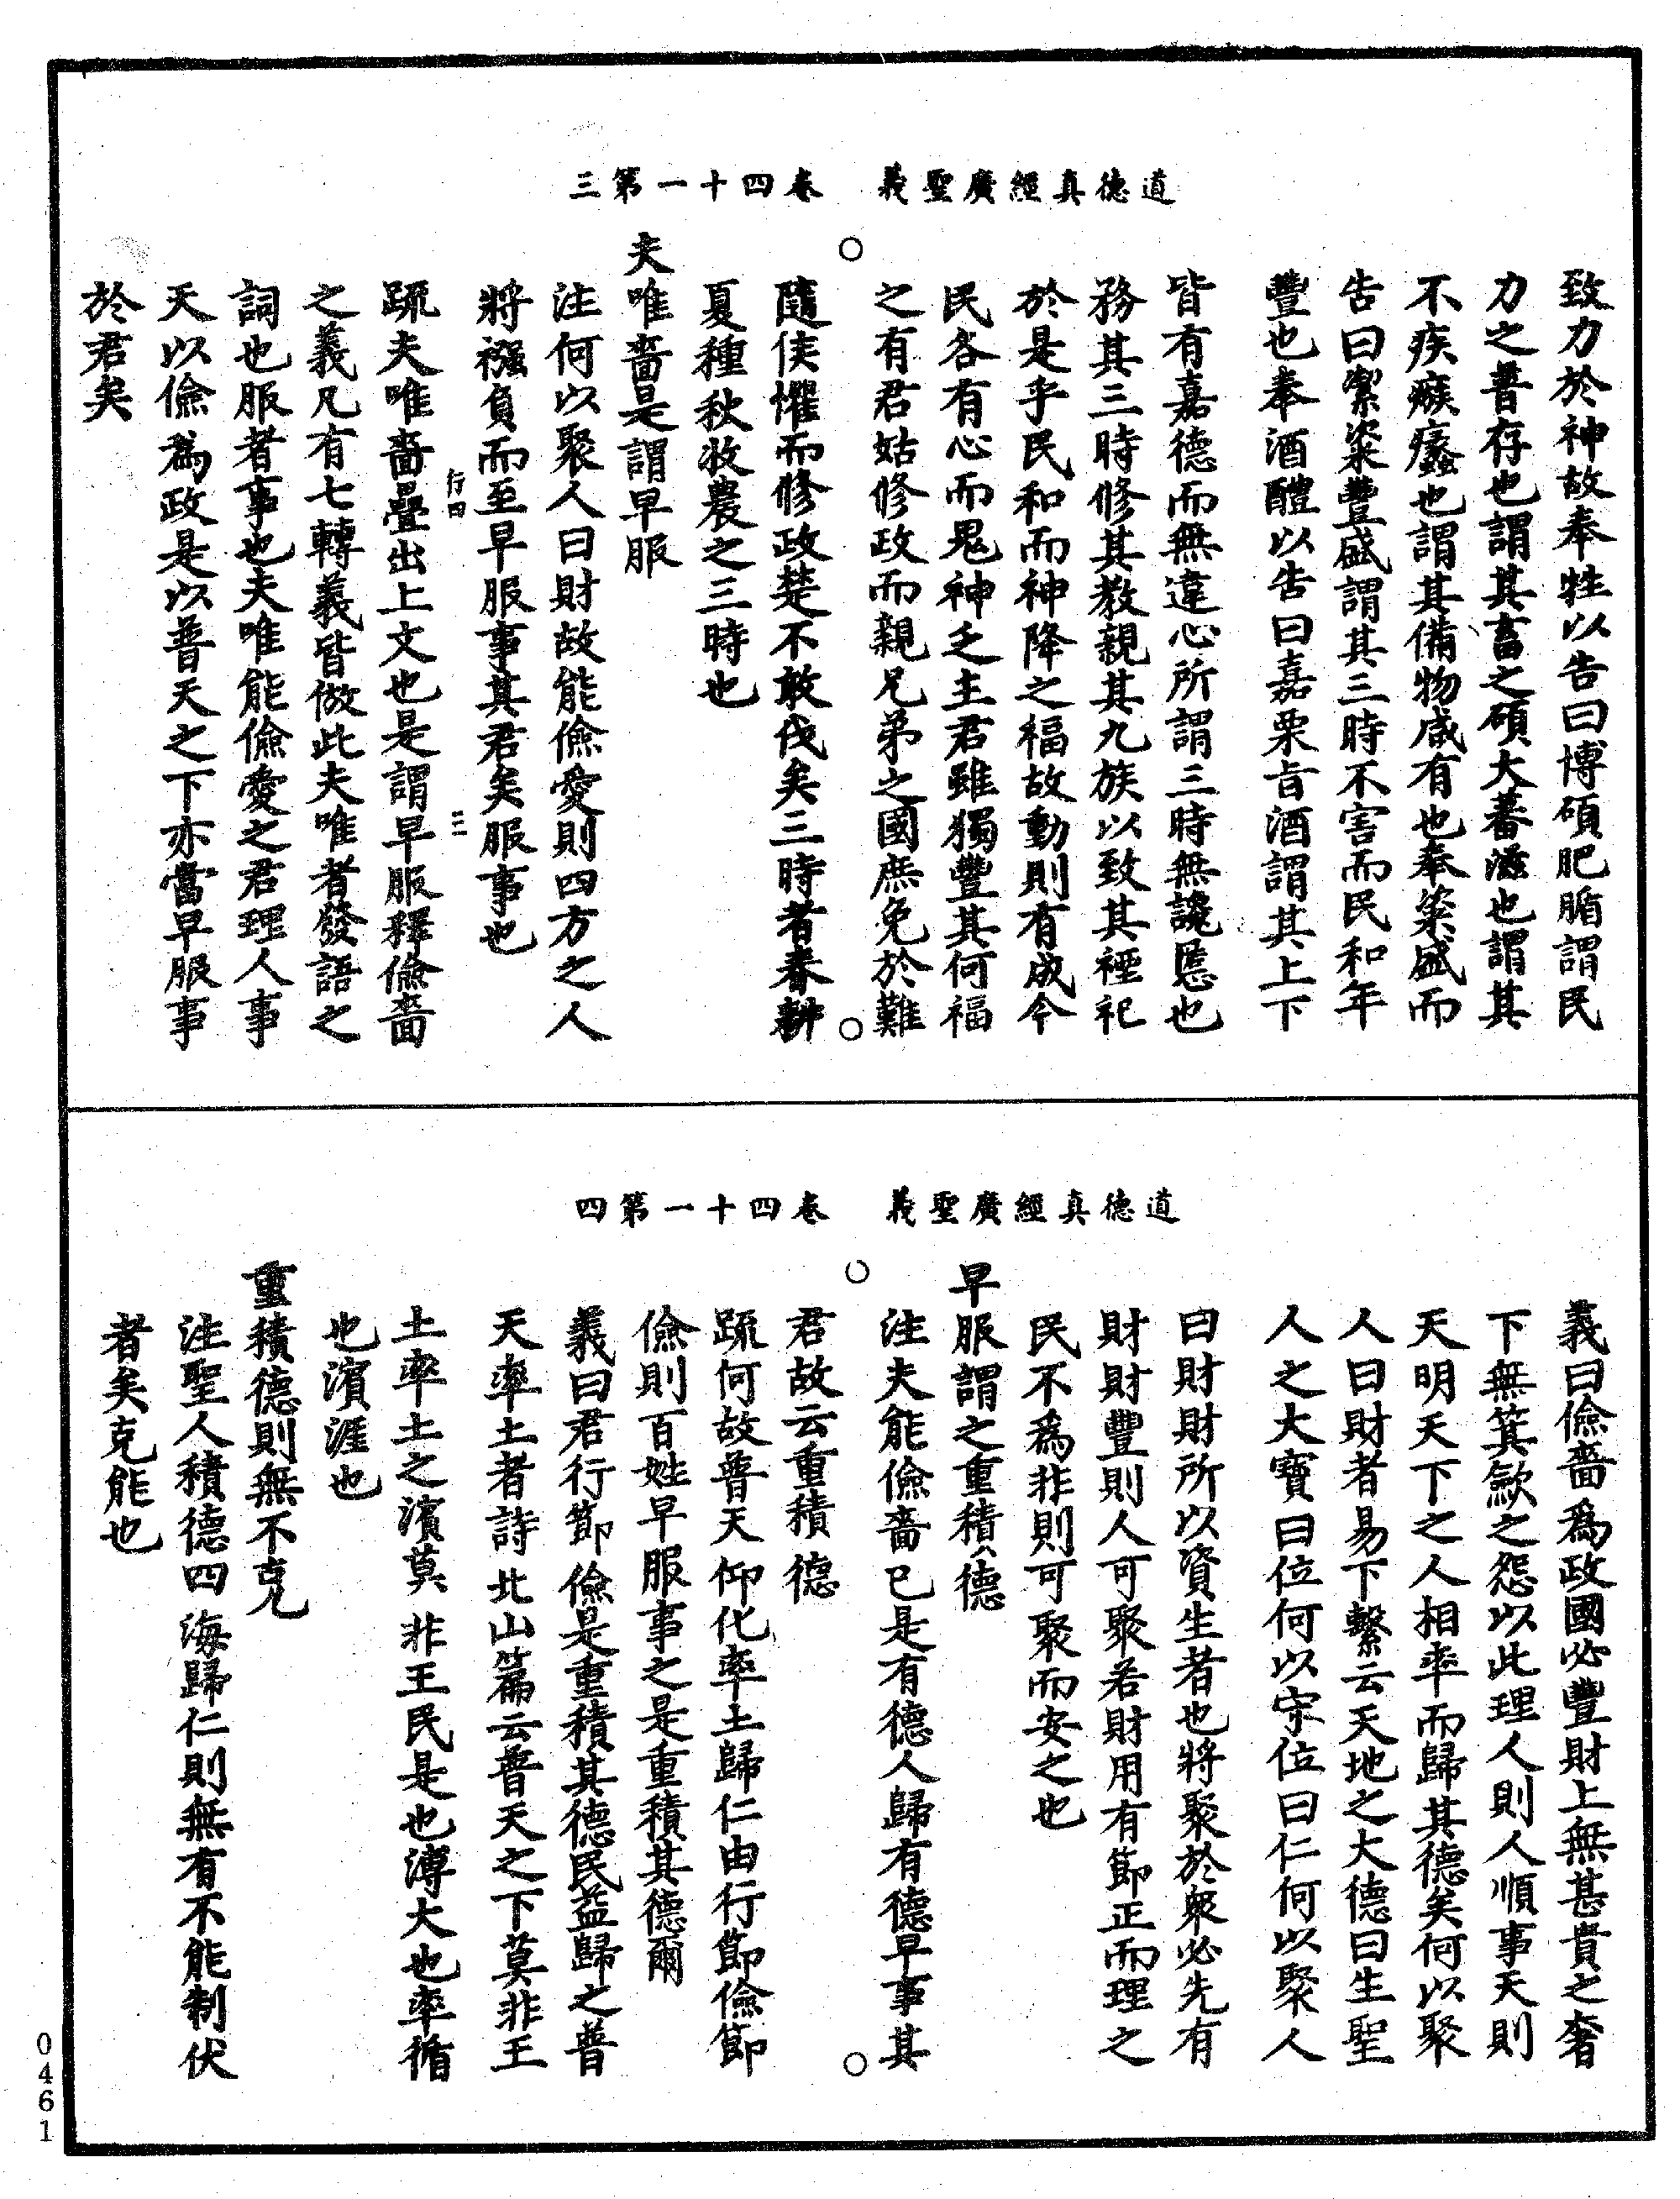 道德真經廣聖義　卷四十一第三
致力於神故奉牲以告曰博碩肥腯謂民
力之普存也謂其畜之碩大蕃滋也謂其
不疾瘯蠡也謂其備物咸有也奉粢盛而
告曰潔粢豐盛謂其三時不害而民和年
豐也奉酒醴以告曰嘉栗旨酒謂其上下
皆有嘉德而無違心所謂三時無讒慝也
務其三時修其教親其九族以致其禋祀
於是乎民和而神降之福故動則有成今
民各有心而鬼神乏主君雖獨豐其何福
之有君姑修政而親兄弟之國庶免於難
隨侯懼而修政楚不敢伐矣三時者春耕
夏種秋收農之三時也
夫唯嗇是謂早服
注何以聚人曰財故能儉愛則四方之人
將襁負而至早服事其君矣服事也
行四　三
疏夫唯嗇疊出上文也是謂早服釋儉嗇
之義凡有七轉義皆倣此夫唯者發語之
詞也服者事也夫唯能儉愛之君理人事
天以儉為政是以普天之下亦當早服事
於君矣
道德真經廣聖義　卷四十一第四
義曰儉嗇為政國必豐財上無甚貴之奢
下無箕歛之怨以此理人則人順事天則
天明天下之人相率而歸其德矣何以聚
人曰財者易下繫云天地之大德曰生聖
人之大寶曰位何以守位曰仁何以聚人
曰財財所以資生者也將聚於眾必先有
財財豐則人可聚若財用有節正而理之
民不為非則可聚而安之也
早服謂之重積德
注夫能儉嗇已是有德人歸有德早事其
君故云重積德
疏何故普天仰化率土歸仁由行節儉節
儉則百姓早服事之是重積其德爾
義曰君行節儉是重積其德民益歸之普
天率土者詩北山篇云普天之下莫非王
土率土之濱莫非王民是也溥大也率循
也濱涯也
重積德則無不克
注聖人積德四海歸仁則無有不能制伏
者矣克能也
0461